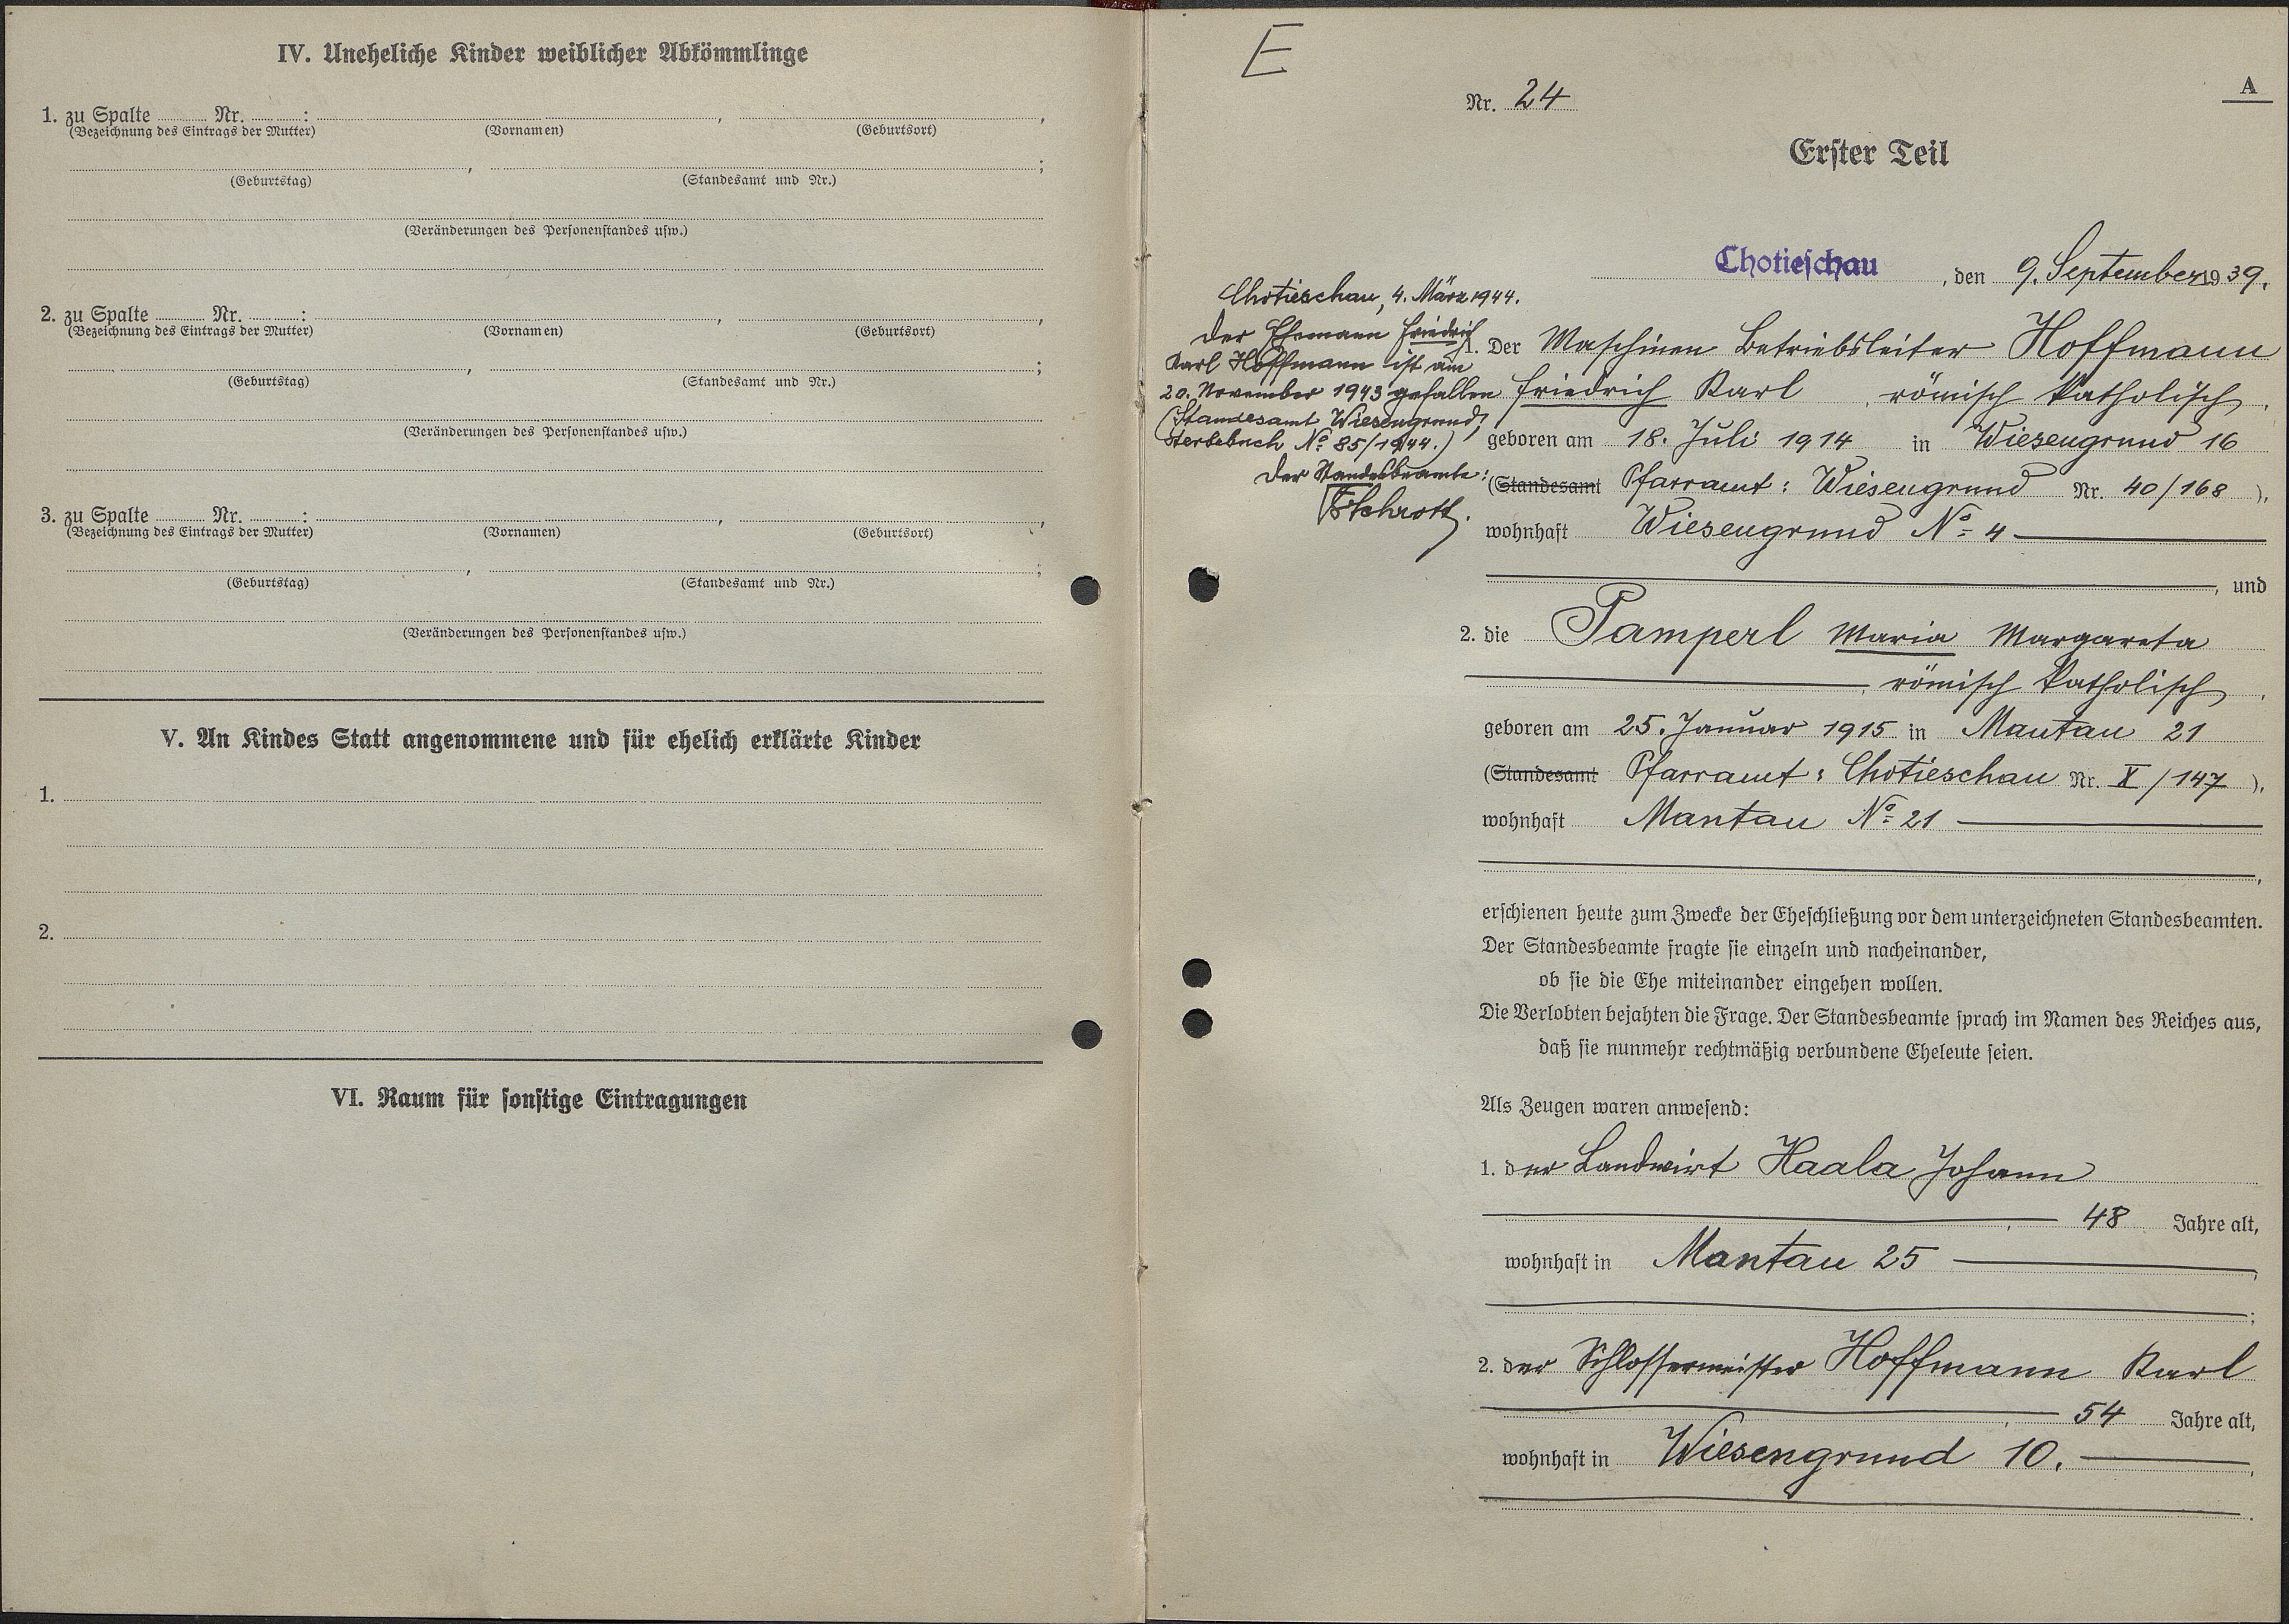 IV. Uneheliche Kinder weiblicher Abkömmlinge
1. zu Spalte ........ Nr. ........ :
(Bezeichnung des Eintrags der Mutter) (Vornamen) (Geburtsort)
(Geburtstag) (Standesamt und Nr.)
(Veränderungen des Personenstandes usw.)
2. zu Spalte ........ Nr. ........ :
(Bezeichnung des Eintrags der Mutter) (Vornamen) (Geburtsort)
(Geburtstag) (Standesamt und Nr.)
(Veränderungen des Personenstandes usw.)
3. zu Spalte ........ Nr. ........ :
(Bezeichnung des Eintrags der Mutter) (Vornamen) (Geburtsort)
(Geburtstag) (Standesamt und Nr.)
(Veränderungen des Personenstandes usw.)
V. An Kindes Statt angenommene und für ehelich erklärte Kinder
1.
2.
VI. Raum für sonstige Eintragungen
E
Nr. 24
A
Erster Teil
Chotieschau, den 9. September 1939.
Chotieschau, 4. März 1944.
Der Ehemann Friedrich
Karl Hoffmann ist am
20. November 1943 gefallen
(Standesamt Wiesengrund,
Sterbebuch No 85/1944.)
Der Standesbeamte:
1. Der Maschinen Betriebsleiter Hoffmann
Friedrich Karl, römisch katholisch,
geboren am 18. Juli 1914 in Wiesengrund 16
(Standesamt Pfarramt: Wiesengrund Nr. 40/168),
wohnhaft Wiesengrund No 4
, und
2. die Pamperl Maria Margareta
, römisch katholisch,
geboren am 25. Januar 1915 in Mantau 21
(Standesamt Pfarramt: Chotieschau Nr. X/147),
wohnhaft Mantau No 21
erschienen heute zum Zwecke der Eheschließung vor dem unterzeichneten Standesbeamten.
Der Standesbeamte fragte sie einzeln und nacheinander,
ob sie die Ehe miteinander eingehen wollen.
Die Verlobten bejahten die Frage. Der Standesbeamte sprach im Namen des Reiches aus,
daß sie nunmehr rechtmäßig verbundene Eheleute seien.
Als Zeugen waren anwesend:
1. der Landwirt Haala Johann
, 48 Jahre alt,
wohnhaft in Mantau 25
;
2. der Schlossermeister Hoffmann Karl
, 54 Jahre alt,
wohnhaft in Wiesengrund 10.